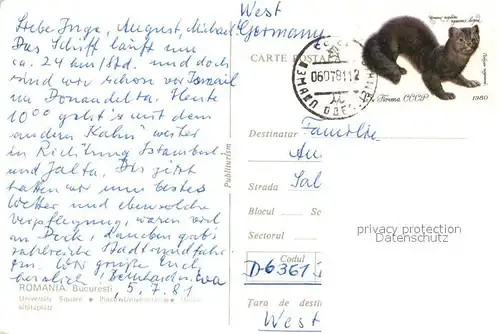 West
Germany
Liebe Inge, August, Michael
Das Schiff läuft um
ca. 24 km/Std. und doch
sind wir schon vor Ismail
im Donaudelta. Heute
10⁰⁰ geht's mit dem
andern Kahn" weiter
in Richtung Istambul-
und Jalta. Bis jetzt
hatten wir bestes
Wetter und ebensolche
Verpflegung, waren viel
an Deck, daneben gab's
zahlreiche Stadtrundfahr-
ten. Wir grüße Euch
herzlich, Bernhard u. Eva
5.7.81
ROMANIA Bucuresti
University Square
Publiturism
CARTE POSTALA
060781 12
Почта СССР 1980
Destinatar Familie
Au
Strada Sal
Blocul Sc
Sectorul
Codul
D-6361
Țara de desti
West
privacy protection
Datenschutz